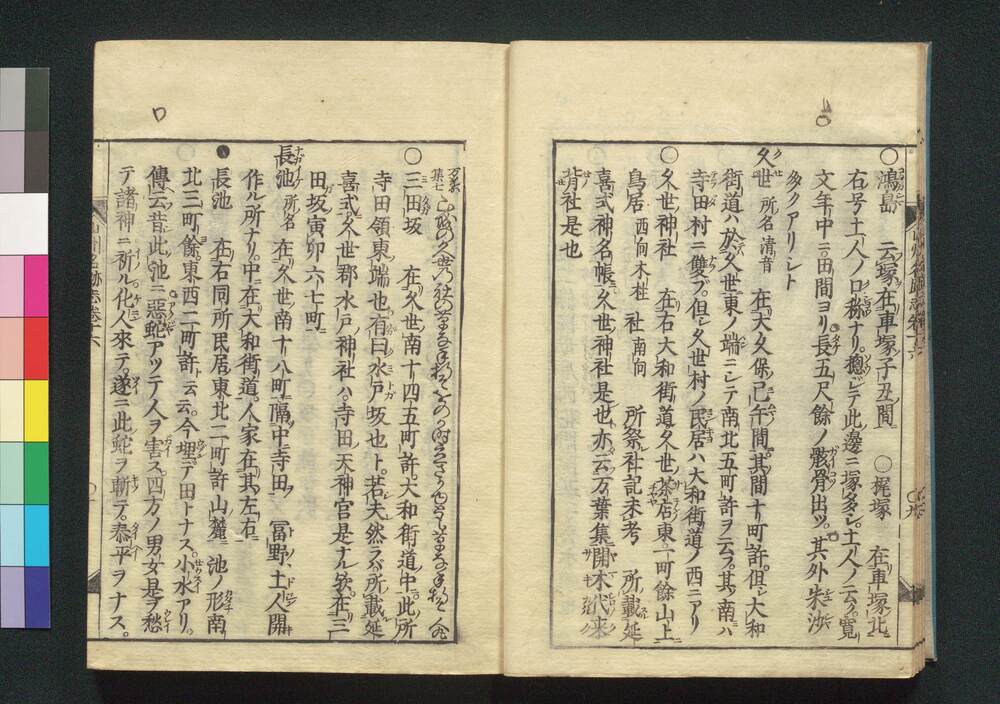 ○鴻島 云塚在車塚子丑間 ○梶塚 在車塚北
右号土人ノ口称ナリ。總シテ此邊ニ塚多シ。土人ノ云フ。寛
文年中ニ。田間ヨリ。長五尺餘ノ骸骨出ツ。其外朱沙
多クアリシト
久世 所名清音 在大久保巳午間。其間十町許。但シ大和
街道ハ於久世東ノ端ニシテ南北五町許ヲ云フ。其南ハ
寺田村ニ雙フ。但シ久世村ノ民居ハ大和街道ノ西ニアリ
○久世神社 在右大和街道久世茶店東一町餘山上
鳥居 西向木柱 社南向 所祭社記未考 所載延
喜式神名帳久世神社是也亦云万葉集開木代来
背社是也
万葉集七
○三田坂 在久世南十四五町許。大和街道中。此所
寺田領東端也有曰水戸坂也ト。若夫然ラバ所載延
喜式久世郡水戸神社ハ。寺田天神宮是ナル欤。在三
田坂寅卯六七町
長池 所名 在久世南十八町隔中寺田 冨野土人開
作ル所ナリ。中在大和街道。人家在其左右
●長池 在右同所民居東北二町許山麓 池ノ形南
北三町餘。東西二町許ト云云。今埋テ田トナス。小水アリ。
傳云昔此池ニ惡蛇アツテ人ヲ害ス。四方ノ男女是ヲ愁
テ諸神ニ祈ル。化人來テ。遂ニ此蛇ヲ斬テ。泰平ヲナス。